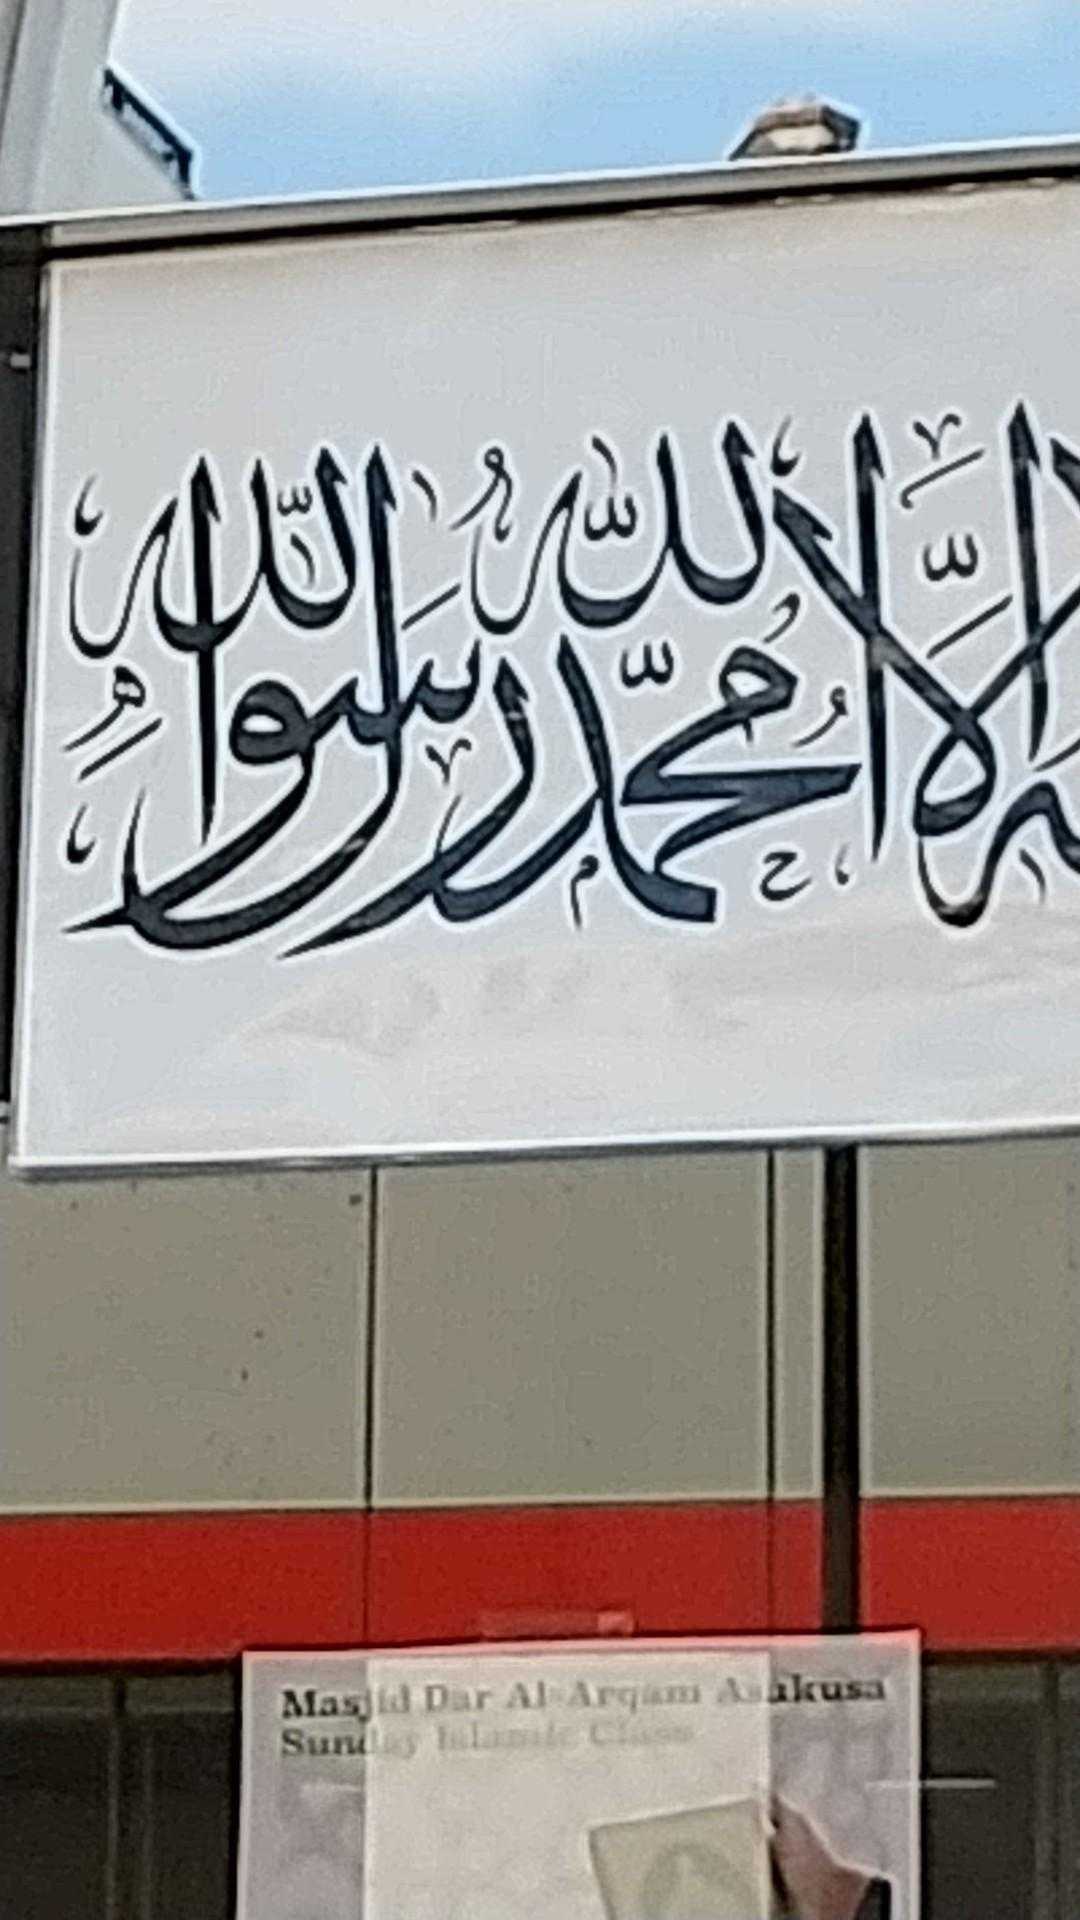 لا إله إلا الله محمد رسول الله
Masjid Dar Al-Arqam Asakusa
Sunday Islamic Class